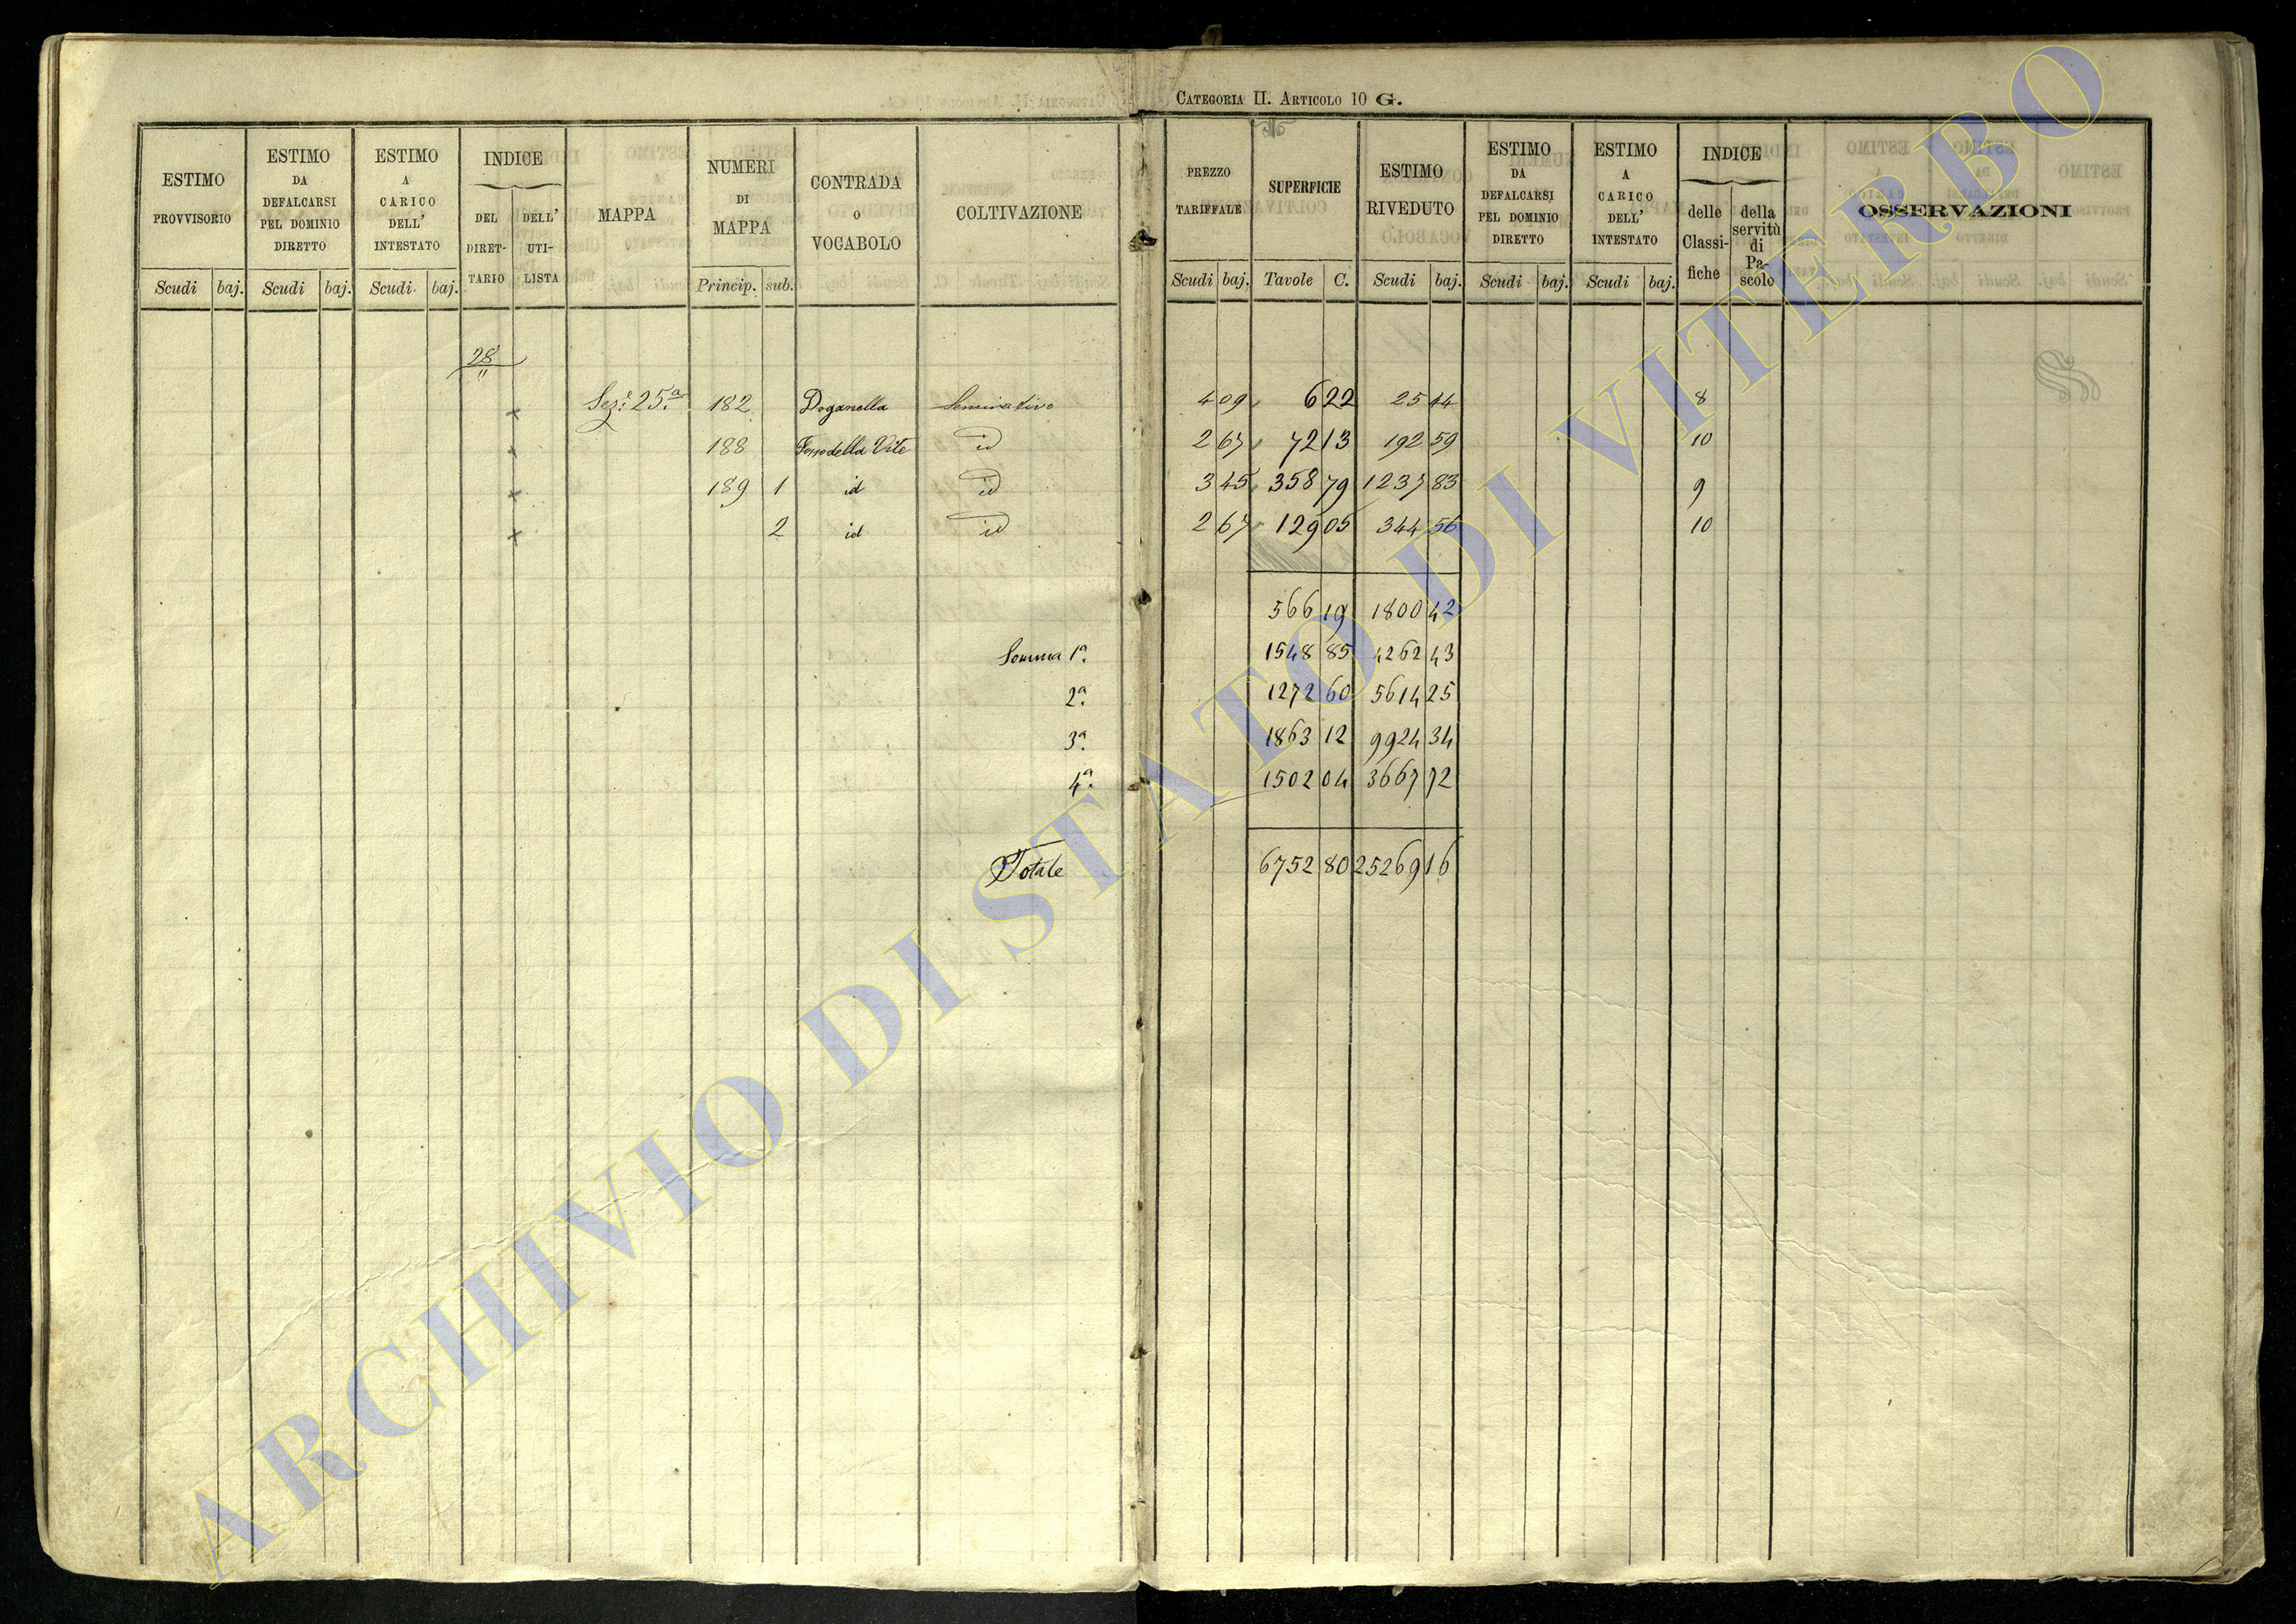 CATEGORIA II. ARTICOLO 10 G.
ESTIMO PROVVISORIO Scudi baj.
ESTIMO DA DEFALCARSI PEL DOMINIO DIRETTO Scudi baj.
ESTIMO A CARICO DELL' INTESTATO Scudi baj.
INDICE DEL DIRET-TARIO DELL' UTI-LISTA
MAPPA
NUMERI DI MAPPA Princip. sub.
CONTRADA O VOCABOLO
COLTIVAZIONE
PREZZO TARIFFALE Scudi baj.
SUPERFICIE Tavole C.
ESTIMO RIVEDUTO Scudi baj.
ESTIMO DA DEFALCARSI PEL DOMINIO DIRETTO Scudi baj.
ESTIMO A CARICO DELL' INTESTATO Scudi baj.
INDICE delle Classi-fiche della servitù di Pa-scolo
OSSERVAZIONI
28
"
× Sez.e 25.a 182 Doganella Seminativo 4 09 6 22 25 44 8
× 188 Fosso della Vite id 2 67 72 13 192 59 10
× 189 1 id id 3 45 358 79 1237 83 9
× 2 id id 2 67 129 05 344 56 10
566 19 1800 42
Somma 1a. 1548 85 4262 43
2a. 1272 60 5614 25
3a. 1863 12 9924 34
4a. 1502 04 3667 72
Totale 6752 80 25269 16
ARCHIVIO DI STATO DI VITERBO